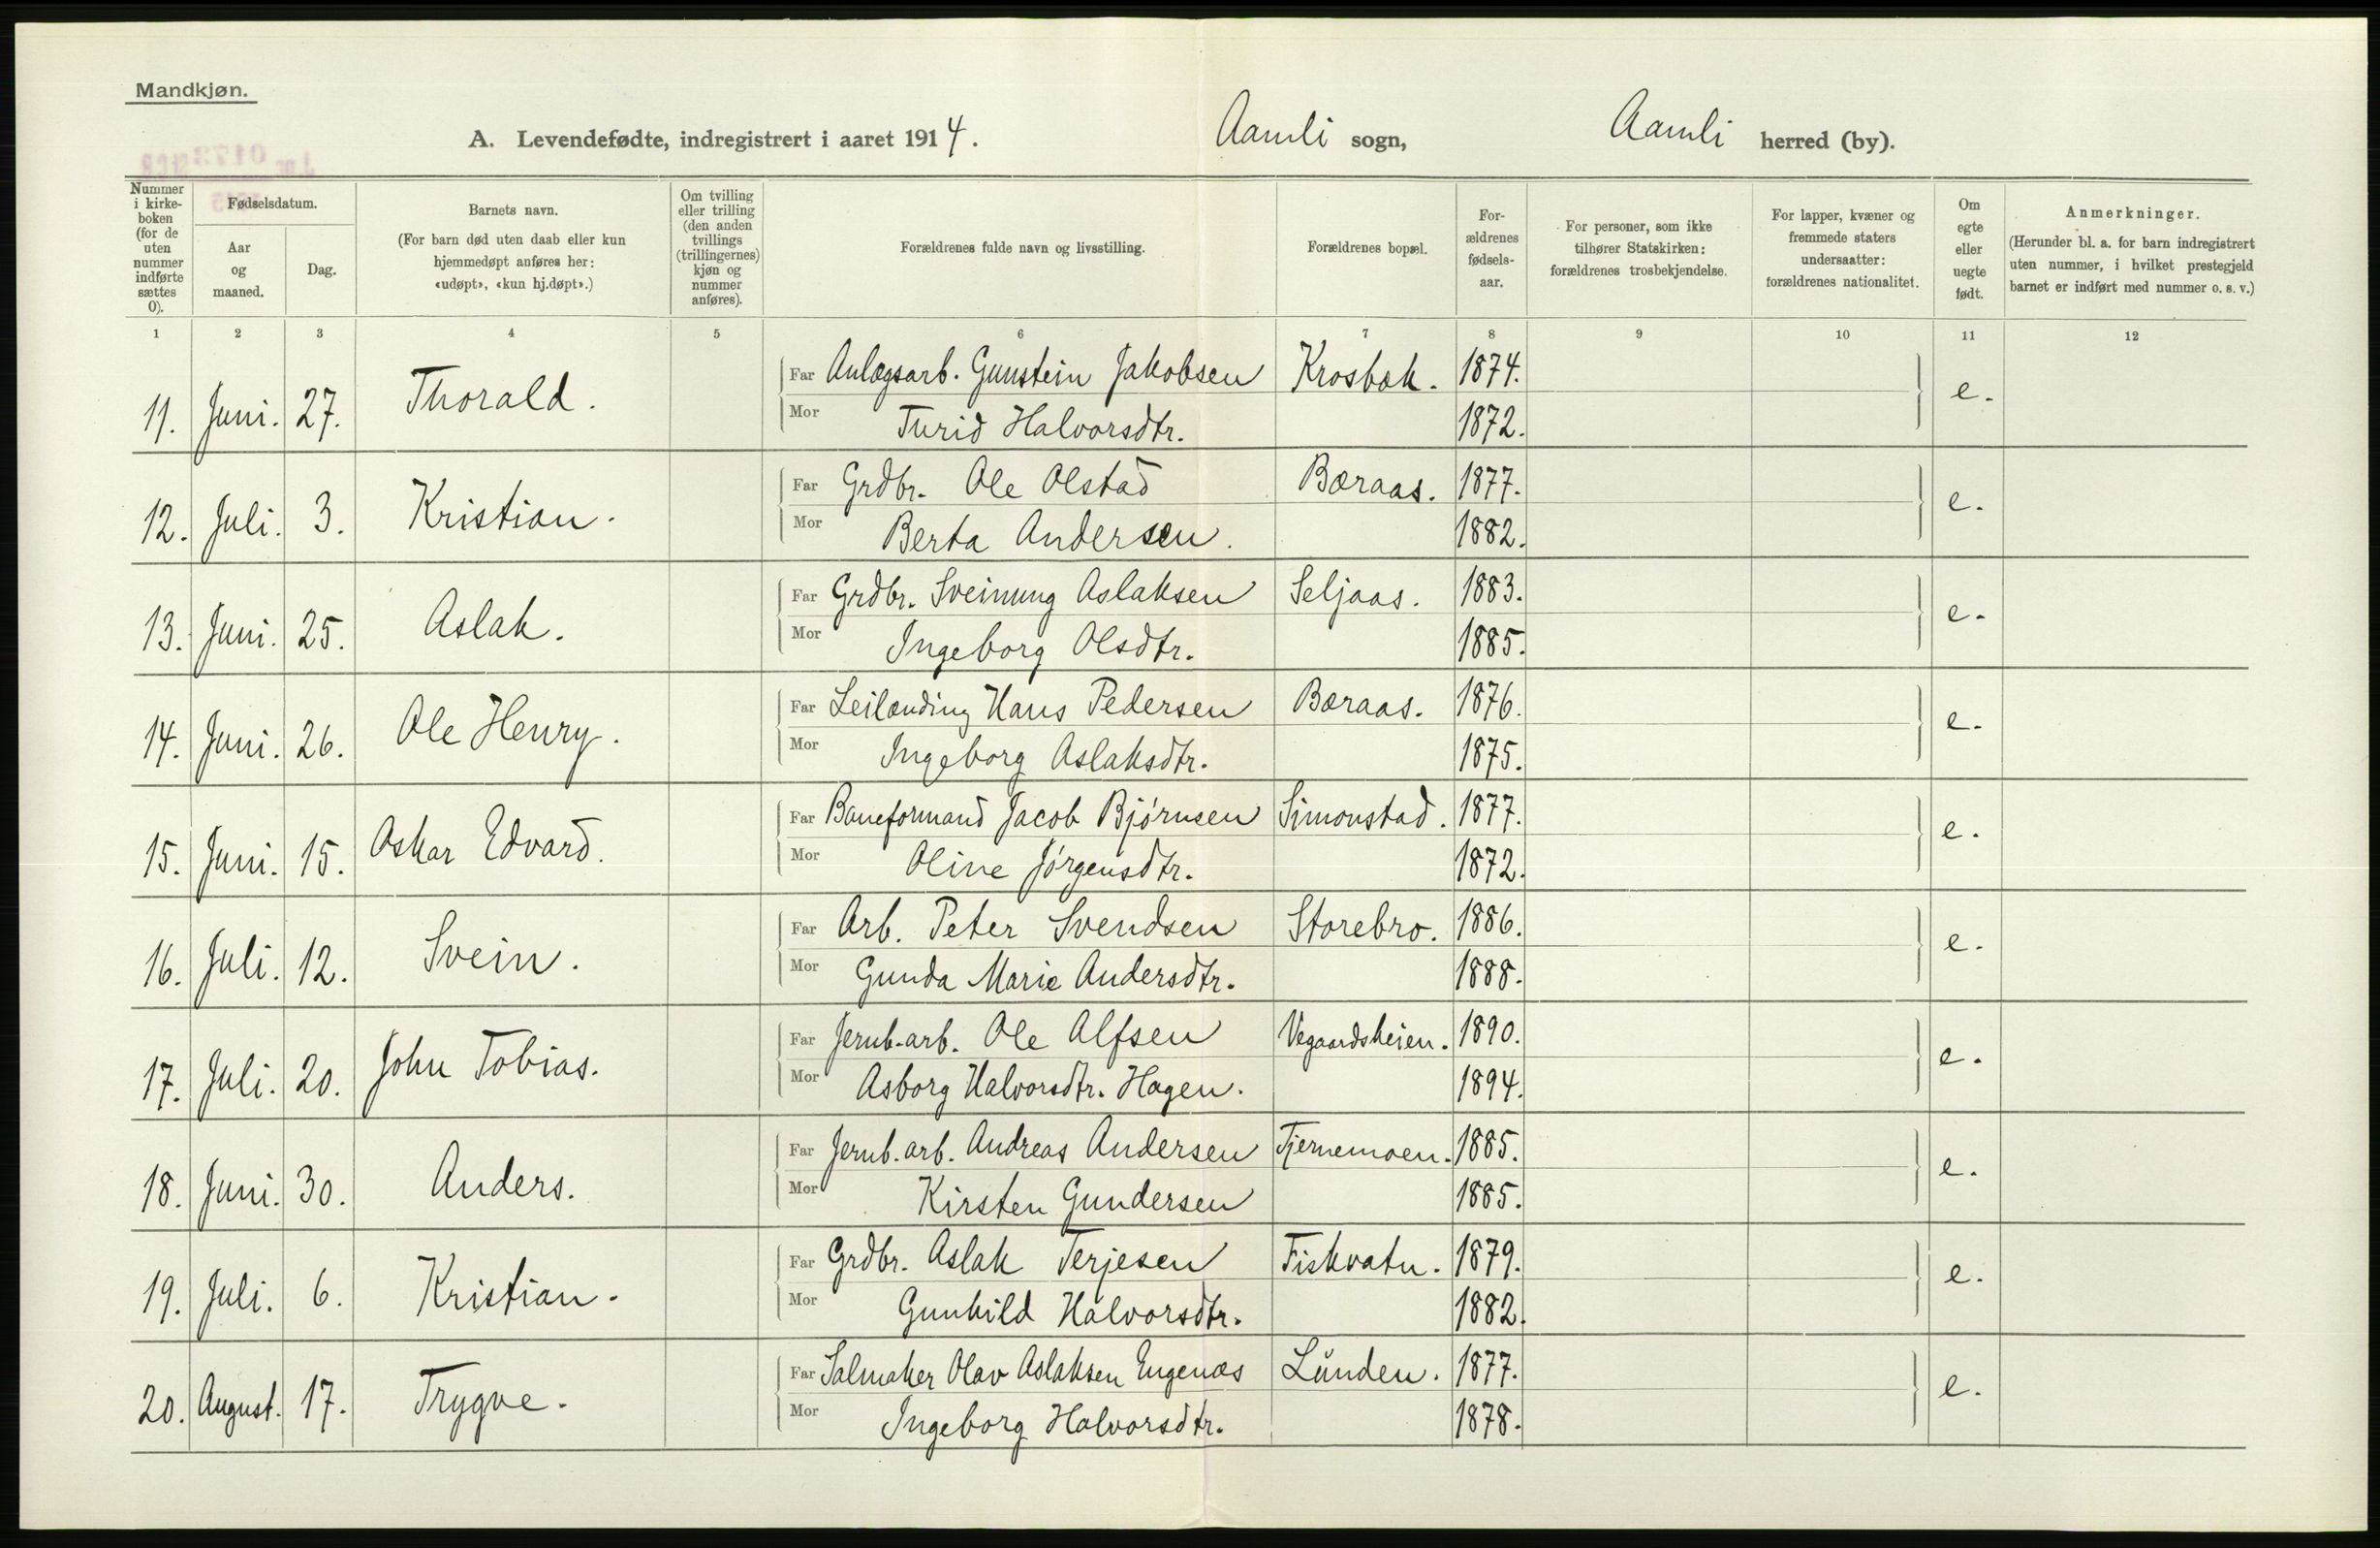 Mandkjøn.
A. Levendefødte, indregistrert i aaret 1914. Aamli sogn, Aamli herred (by).
Nummer i kirke-boken (for de uten nummer indførte sættes 0).
Fødselsdatum.
Aar og maaned.
Dag.
Barnets navn.
(For barn død uten daab eller kun hjemmedøpt anføres her: «udøpt», «kun hj.døpt».)
Om tvilling eller trilling (den anden tvillings (trillingernes) kjøn og nummer anføres).
Forældrenes fulde navn og livsstilling.
Forældrenes bopæl.
For-ældrenes fødsels-aar.
For personer, som ikke tilhører Statskirken: forældrenes trosbekjendelse.
For lapper, kvæner og fremmede staters undersaatter: forældrenes nationalitet.
Om egte eller uegte født.
Anmerkninger.
(Herunder bl. a. for barn indregistrert uten nummer, i hvilket prestegjeld barnet er indført med nummer o. s. v.)
1 2 3 4 5 6 7 8 9 10 11 12
11. Juni. 27. Thorald. Far Anlægsarb. Gunstein Jakobsen Krosbæk. 1874. e.
Mor Turid Halvorsdtr. 1872.
12. Juli. 3. Kristian. Far Grdbr. Ole Olstad Bæraas. 1877. e.
Mor Berta Andersen. 1882.
13. Juni. 25. Aslak. Far Grdbr. Sveinung Aslaksen Seljaas. 1883. e.
Mor Ingeborg Olsdtr. 1885.
14. Juni. 26. Ole Henry. Far Leilænding Hans Pedersen Bæraas. 1876. e.
Mor Ingeborg Aslaksdtr. 1875.
15. Juni. 15. Oskar Edvard. Far Baneformand Jacob Bjørnsen Simonstad. 1877. e.
Mor Oline Jørgensdtr. 1872.
16. Juli. 12. Svein. Far Arb. Peter Svendsen Storebro. 1886. e.
Mor Gunda Marie Andersdtr. 1888.
17. Juli. 20. John Tobias. Far Jernb.arb. Ole Alfsen Vegaardsheien. 1890. e.
Mor Asborg Halvorsdtr. Hagen. 1894.
18. Juni. 30. Anders. Far Jernb.arb. Andreas Andersen Tjernemoen. 1885. e.
Mor Kirsten Gundersen 1885.
19. Juli. 6. Kristian. Far Grdbr. Aslak Terjesen Fiskvatn. 1879. e.
Mor Gunhild Halvorsdtr. 1882.
20. August. 17. Trygve. Far Salmaker Olav Aslaksen Engenæs Lunden. 1877. e.
Mor Ingeborg Halvorsdtr. 1878.